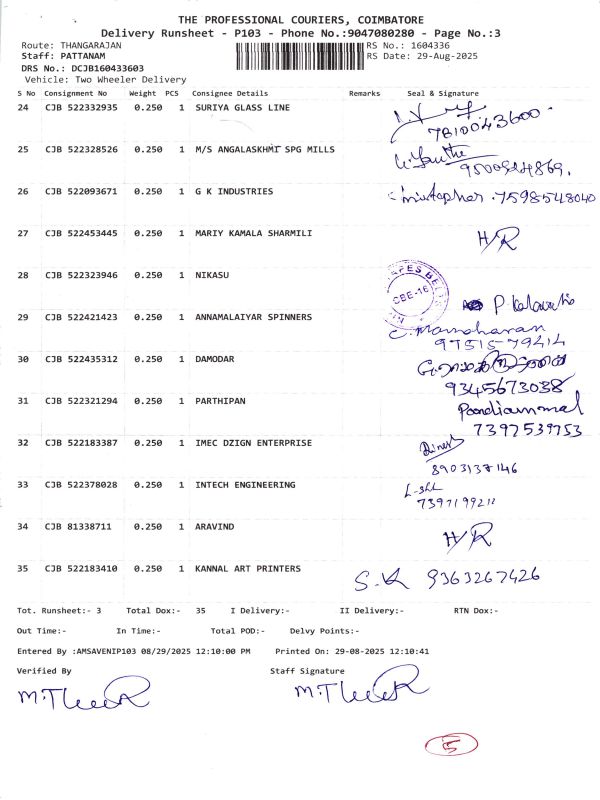 THE PROFESSIONAL COURIERS, COIMBATORE
Delivery Runsheet - P103 - Phone No.:9047080280 - Page No.:3
Route: THANGARAJAN RS No.: 1604336
Staff: PATTANAM RS Date: 29-Aug-2025
DRS No.: DCJB160433603
Vehicle: Two Wheeler Delivery
S No Consignment No Weight PCS Consignee Details Remarks Seal & Signature
24 CJB 522332935 0.250 1 SURIYA GLASS LINE
7810043600
25 CJB 522328526 0.250 1 M/S ANGALASKHMI SPG MILLS
26 CJB 522093671 0.250 1 G K INDUSTRIES
Christopher. 7598548040
27 CJB 522453445 0.250 1 MARIY KAMALA SHARMILI H/R
28 CJB 522323946 0.250 1 NIKASU
CBE-16
29 CJB 522421423 0.250 1 ANNAMALAIYAR SPINNERS
C. Manoharan
9751579414
30 CJB 522435312 0.250 1 DAMODAR
9345673038
31 CJB 522321294 0.250 1 PARTHIPAN
Pandiammal
7397539753
32 CJB 522183387 0.250 1 IMEC DZIGN ENTERPRISE
Dinesh
8903137146
33 CJB 522378028 0.250 1 INTECH ENGINEERING
7397199211
34 CJB 81338711 0.250 1 ARAVIND H/R
35 CJB 522183410 0.250 1 KANNAL ART PRINTERS
S.K 9363267426
Tot. Runsheet:- 3 Total Dox:- 35 I Delivery:- II Delivery:- RTN Dox:-
Out Time:- In Time:- Total POD:- Delvy Points:-
Entered By :AMSAVENIP103 08/29/2025 12:10:00 PM Printed On: 29-08-2025 12:10:41
Verified By Staff Signature
5